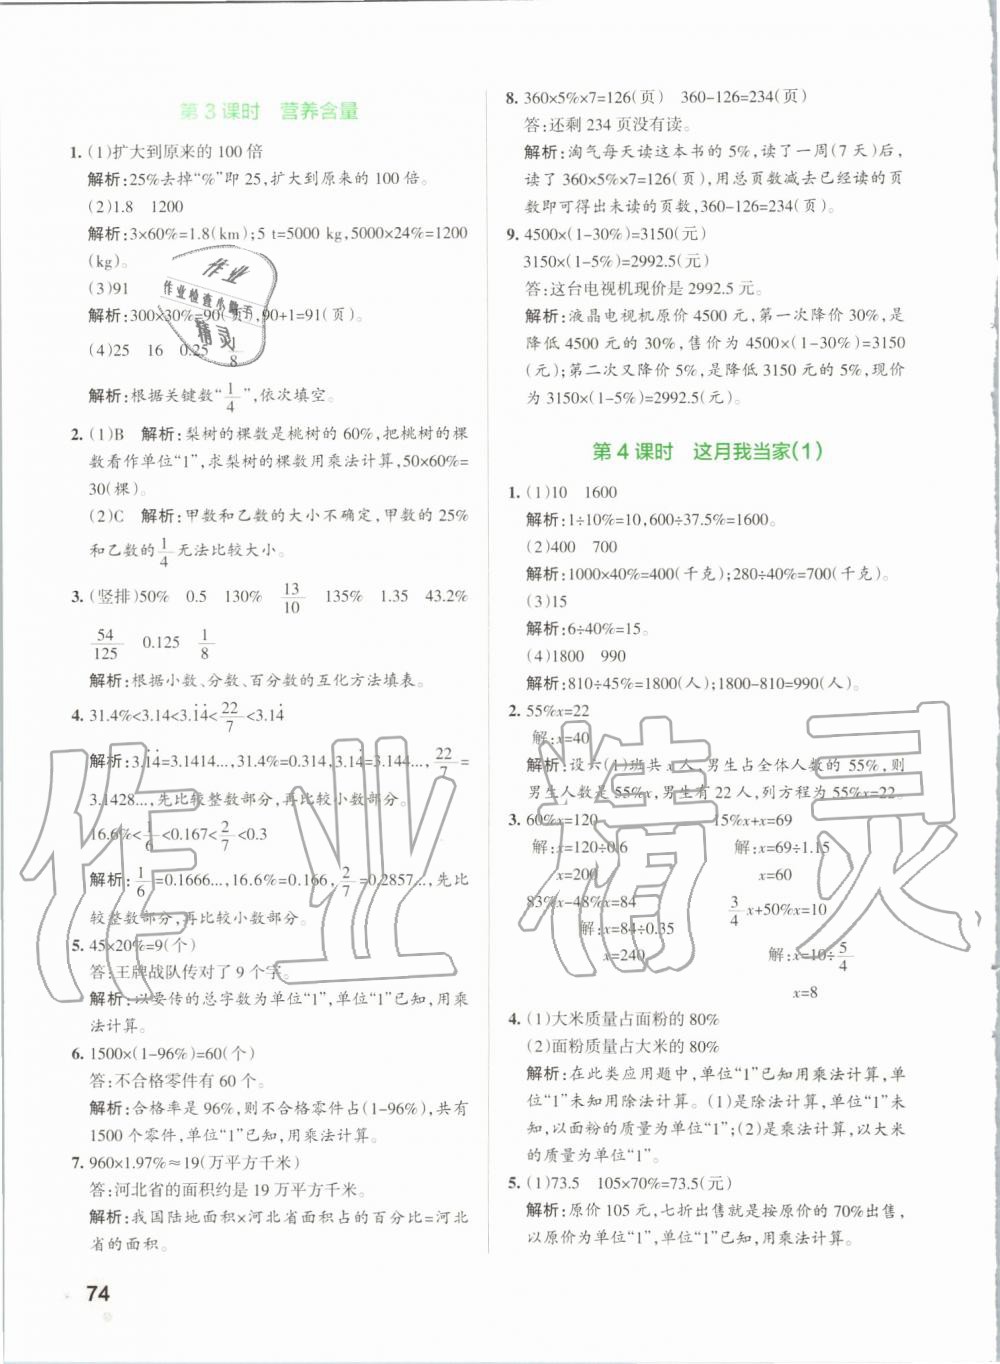 第3课时 营养含量
1. (1)扩大到原来的 100 倍
解析:25%去掉“%”即 25,扩大到原来的 100 倍。
(2)1.8 1200
解析:3×60%=1.8(km);5 t=5000 kg,5000×24%=1200
(kg)。
(3)91
解析:300×30%=90(页),90+1=91(页)。
(4)25 16 0.25 1/8
解析:根据关键数“1/4”,依次填空。
2. (1)B 解析:梨树的棵数是桃树的 60%,把桃树的棵
数看作单位“1”,求梨树的棵数用乘法计算,50×60%=
30(棵)。
(2)C 解析:甲数和乙数的大小不确定,甲数的 25%
和乙数的1/4无法比较大小。
3. (竖排)50% 0.5 130% 13/10 135% 1.35 43.2%
54/125 0.125 1/8
解析:根据小数、分数、百分数的互化方法填表。
4. 31.4%<3.14<3.1̇4̇<22/7<3.14̇
解析:3.1̇4̇=3.1414…,31.4%=0.314,3.14̇=3.144…,22/7=
3.1428…,先比较整数部分,再比较小数部分。
16.6%<1/6<0.167<2/7<0.3
解析:1/6=0.1666…,16.6%=0.166,2/7=0.2857…,先比
较整数部分,再比较小数部分。
5. 45×20%=9(个)
答:王牌战队传对了 9 个字。
解析:以要传的总字数为单位“1”,单位“1”已知,用乘
法计算。
6. 1500×(1-96%)=60(个)
答:不合格零件有 60 个。
解析:合格率是 96%,则不合格零件占(1-96%),共有
1500 个零件,单位“1”已知,用乘法计算。
7. 960×1.97%≈19(万平方千米)
答:河北省的面积约是 19 万平方千米。
解析:我国陆地面积×河北省面积占的百分比=河北
省的面积。
74
8. 360×5%×7=126(页) 360-126=234(页)
答:还剩 234 页没有读。
解析:淘气每天读这本书的 5%,读了一周(7 天)后,
读了 360×5%×7=126(页),用总页数减去已经读的页
数即可得出未读的页数,360-126=234(页)。
9. 4500×(1-30%)=3150(元)
3150×(1-5%)=2992.5(元)
答:这台电视机现价是 2992.5 元。
解析:液晶电视机原价 4500 元,第一次降价 30%,是
降低 4500 元的 30%,售价为 4500×(1-30%)=3150
(元);第二次又降价 5%,是降低 3150 元的 5%,现价
为 3150×(1-5%)=2992.5(元)。
第4课时 这月我当家(1)
1. (1)10 1600
解析:1÷10%=10,600÷37.5%=1600。
(2)400 700
解析:1000×40%=400(千克);280÷40%=700(千克)。
(3)15
解析:6÷40%=15。
(4)1800 990
解析:810÷45%=1800(人);1800-810=990(人)。
2. 55%x=22
解:x=40
解析:设六(1)班共 x 人,男生占全体人数的 55%,则
男生人数是 55%x,男生有 22 人,列方程为55%x=22。
3. 60%x=120 15%x+x=69
解:x=120÷0.6 解:x=69÷1.15
x=200 x=60
83%x-48%x=84 3/4x+50%x=10
解:x=84÷0.35
x=240 解:x=10÷5/4
x=8
4. (1)大米质量占面粉的 80%
(2)面粉质量占大米的 80%
解析:在此类应用题中,单位“1”已知用乘法计算,单
位“1”未知用除法计算。(1)是除法计算,单位“1”未
知,以面粉的质量为单位“1”;(2)是乘法计算,以大米
的质量为单位“1”。
5. (1)73.5 105×70%=73.5(元)
解析:原价 105 元,七折出售就是按原价的 70%出售,
以原价为单位“1”,单位“1”已知,用乘法计算。
作业
作业检查小帮手
精灵
作业精灵